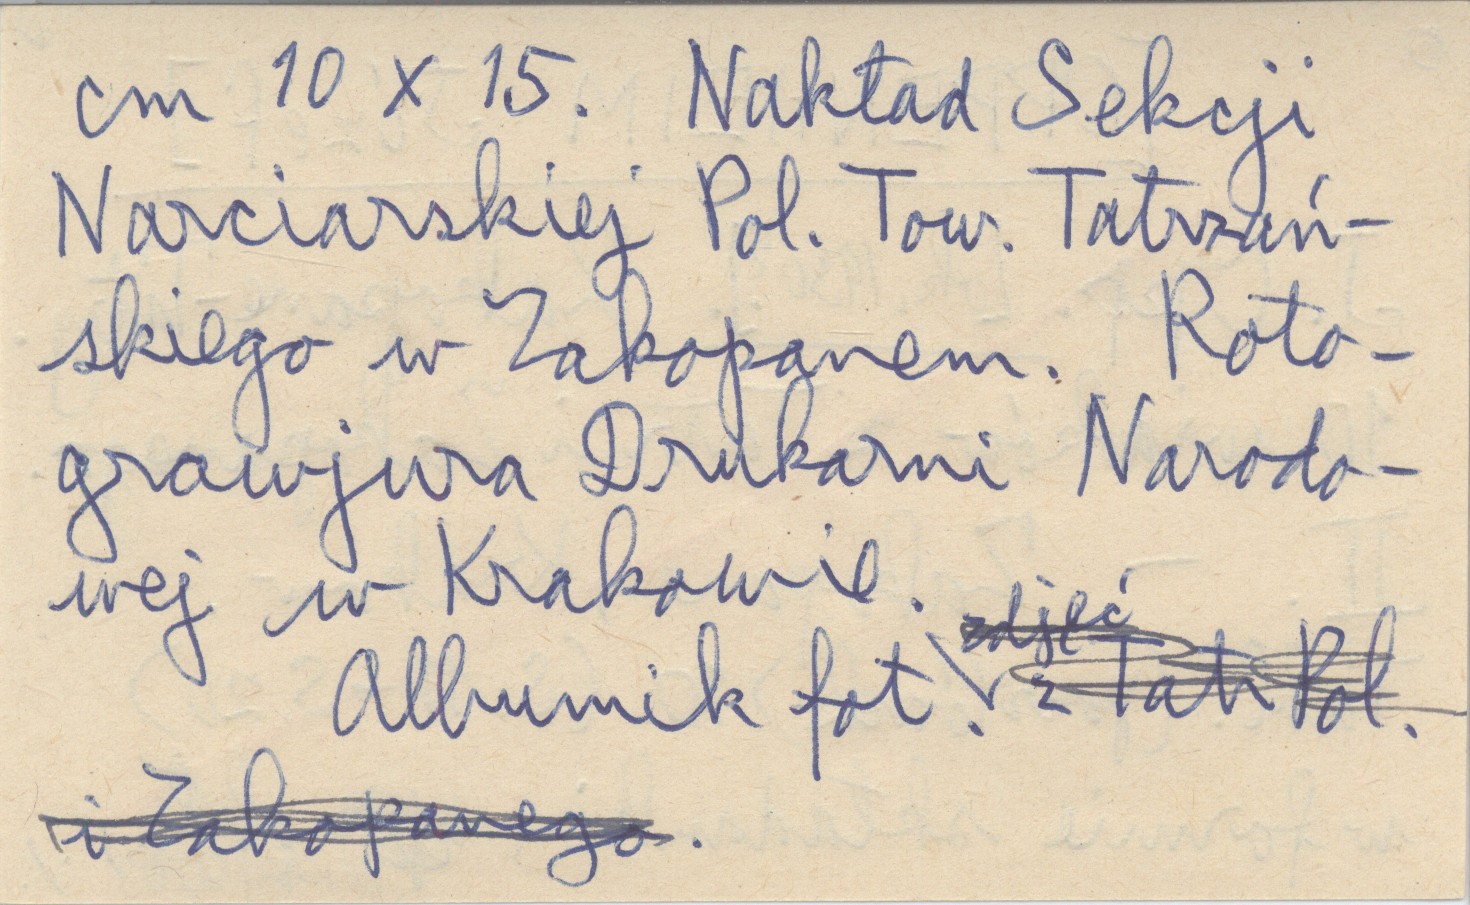 cm 10 x 15. Nakład Sekcji
Narciarskiej Pol. Tow. Tatrzań-
skiego w Zakopanem. Roto-
grawjura Drukarni Narodo-
wej w Krakowie.
zdjęć
Albumik fot. z Tatr Pol.
i Zakopanego.